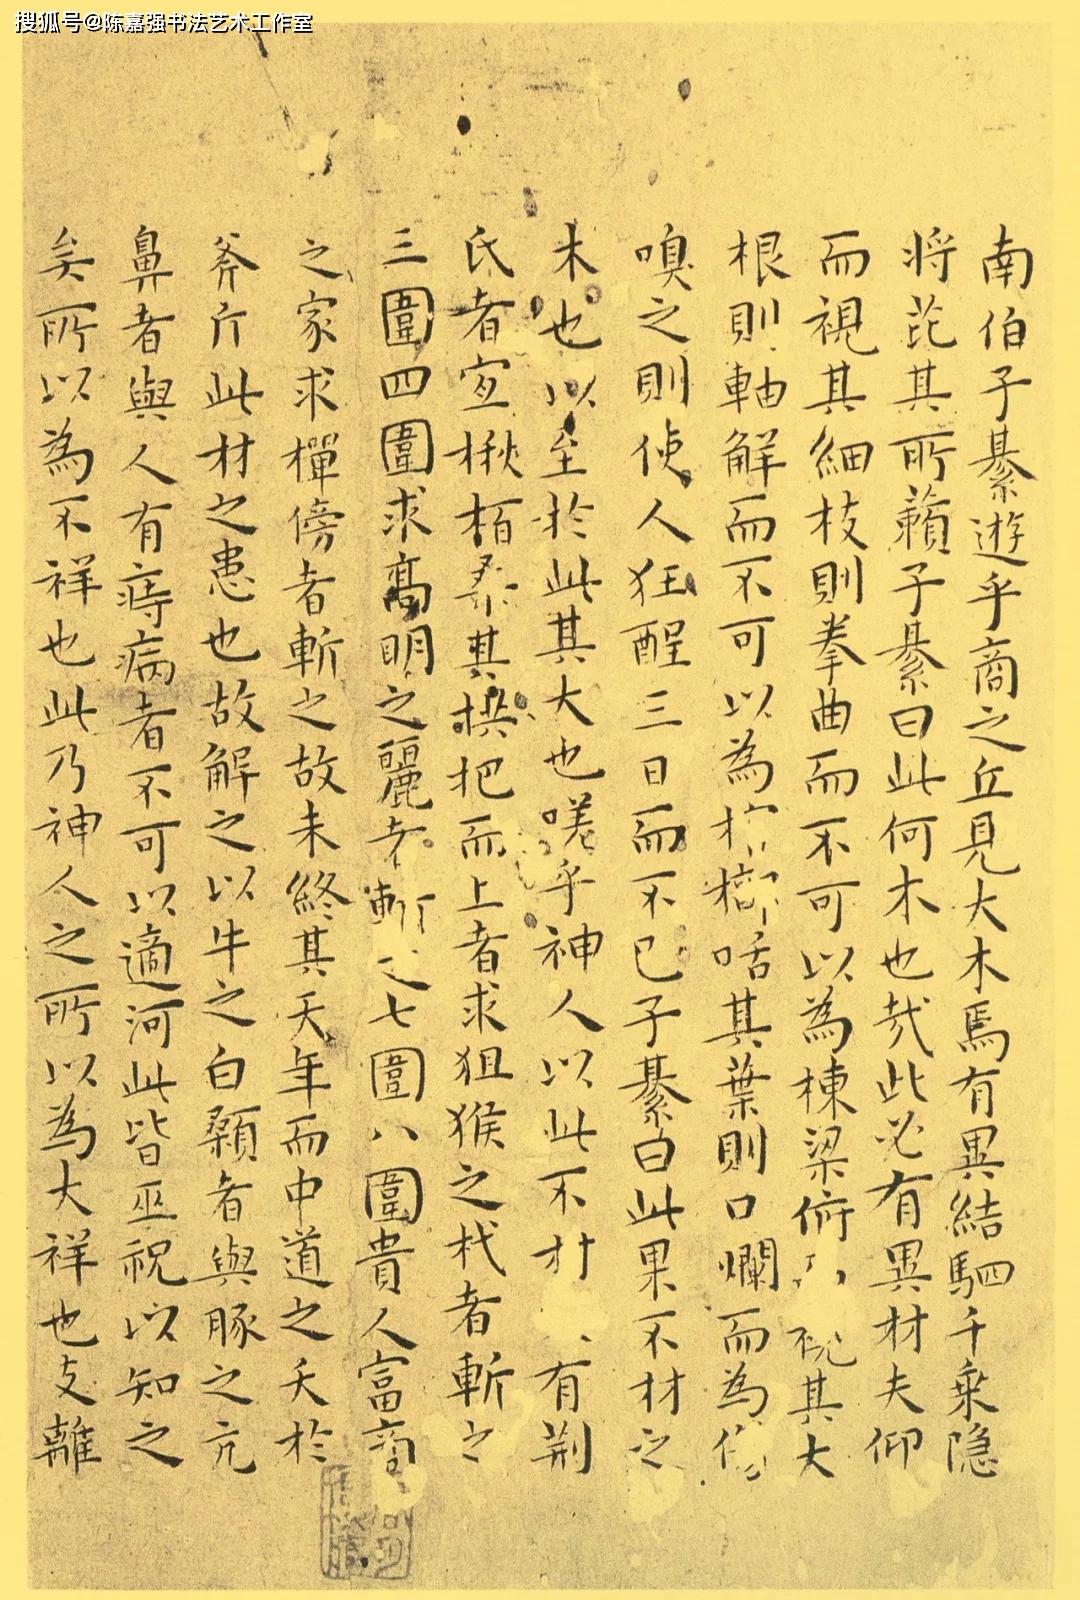 搜狐号@陈嘉强书法艺术工作室
南伯子綦遊乎商之丘見大木焉有異結駟千乘隐
将芘其所藾子綦曰此何木也㢤此必有異材夫仰
而視其細枝則拳曲而不可以為棟梁俯而視其大
根則軸解而不可以為棺槨咶其葉則口爛而為傷
嗅之則使人狂酲三日而不已子綦曰此果不材之
木也以至於此其大也嗟乎神人以此不材有荆
氏者宜楸栢桑其拱把而上者求狙猴之杙者斬之
三圍四圍求髙明之麗者斬之七圍八圍貴人富商
之家求樿傍者斬之故未終其天年而中道之夭於
斧斤此材之患也故解之以牛之白顙者與豚之亢
鼻者與人有痔病者不可以適河此皆巫祝以知之
矣所以為不祥也此乃神人之所以為大祥也支離